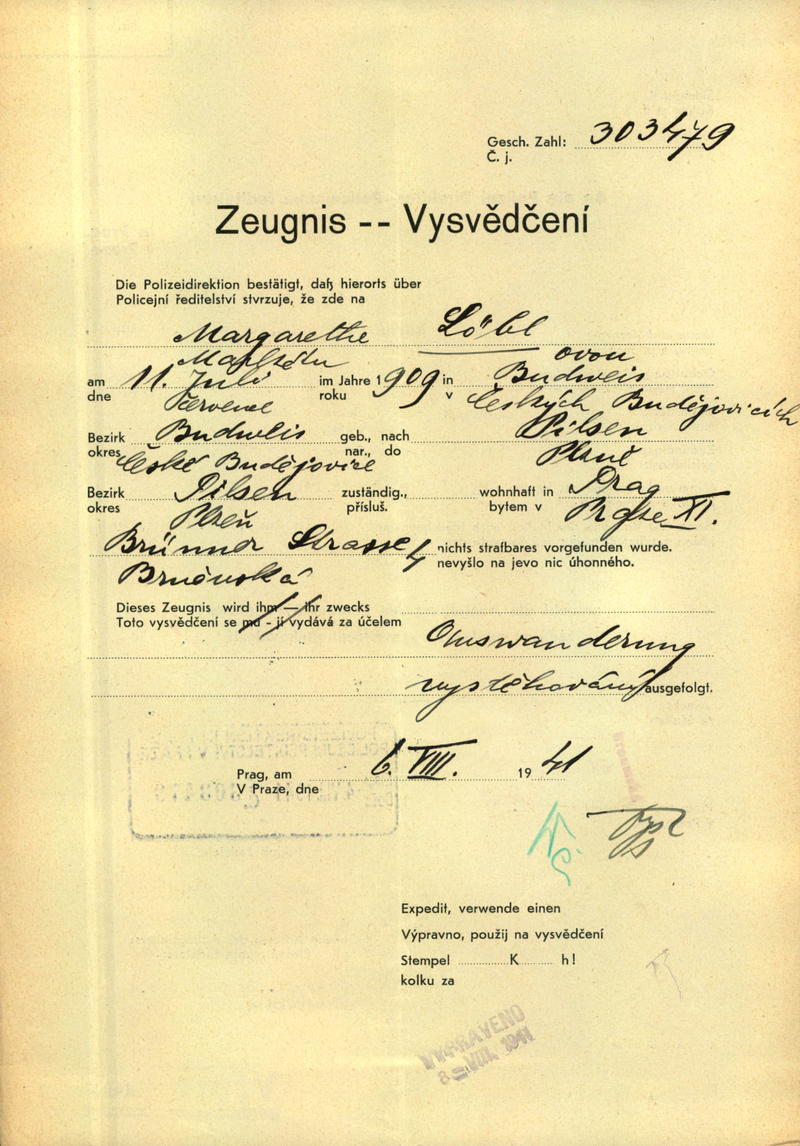 Gesch. Zahl: 303479
Č. j.
Zeugnis -- Vysvědčení
Die Polizeidirektion bestätigt, daß hierorts über
Policejní ředitelství stvrzuje, že zde na
Margarethe Löbl
Markétu ovou
am 11. Juli im Jahre 1909 in Budweis
dne Července roku v Českých Budějovicích
Bezirk Budweis geb., nach Pilsen
okres České Budějovice nar., do Plzně
Bezirk Pilsen zuständig., wohnhaft in Prag
okres Plzeň přísluš. bytem v Praze XI.
Brünner Strasse nichts strafbares vorgefunden wurde.
Brněnská nevyšlo na jevo nic úhonného.
Dieses Zeugnis wird ihm — ihr zwecks
Toto vysvědčení se mu - jí vydává za účelem
Auswanderung
vystěhování ausgefolgt.
Prag, am 6. VIII. 1941
V Praze, dne
Expedit, verwende einen
Výpravno, použij na vysvědčení
Stempel K h!
kolku za
VYPRAVENO
8. VIII. 1941